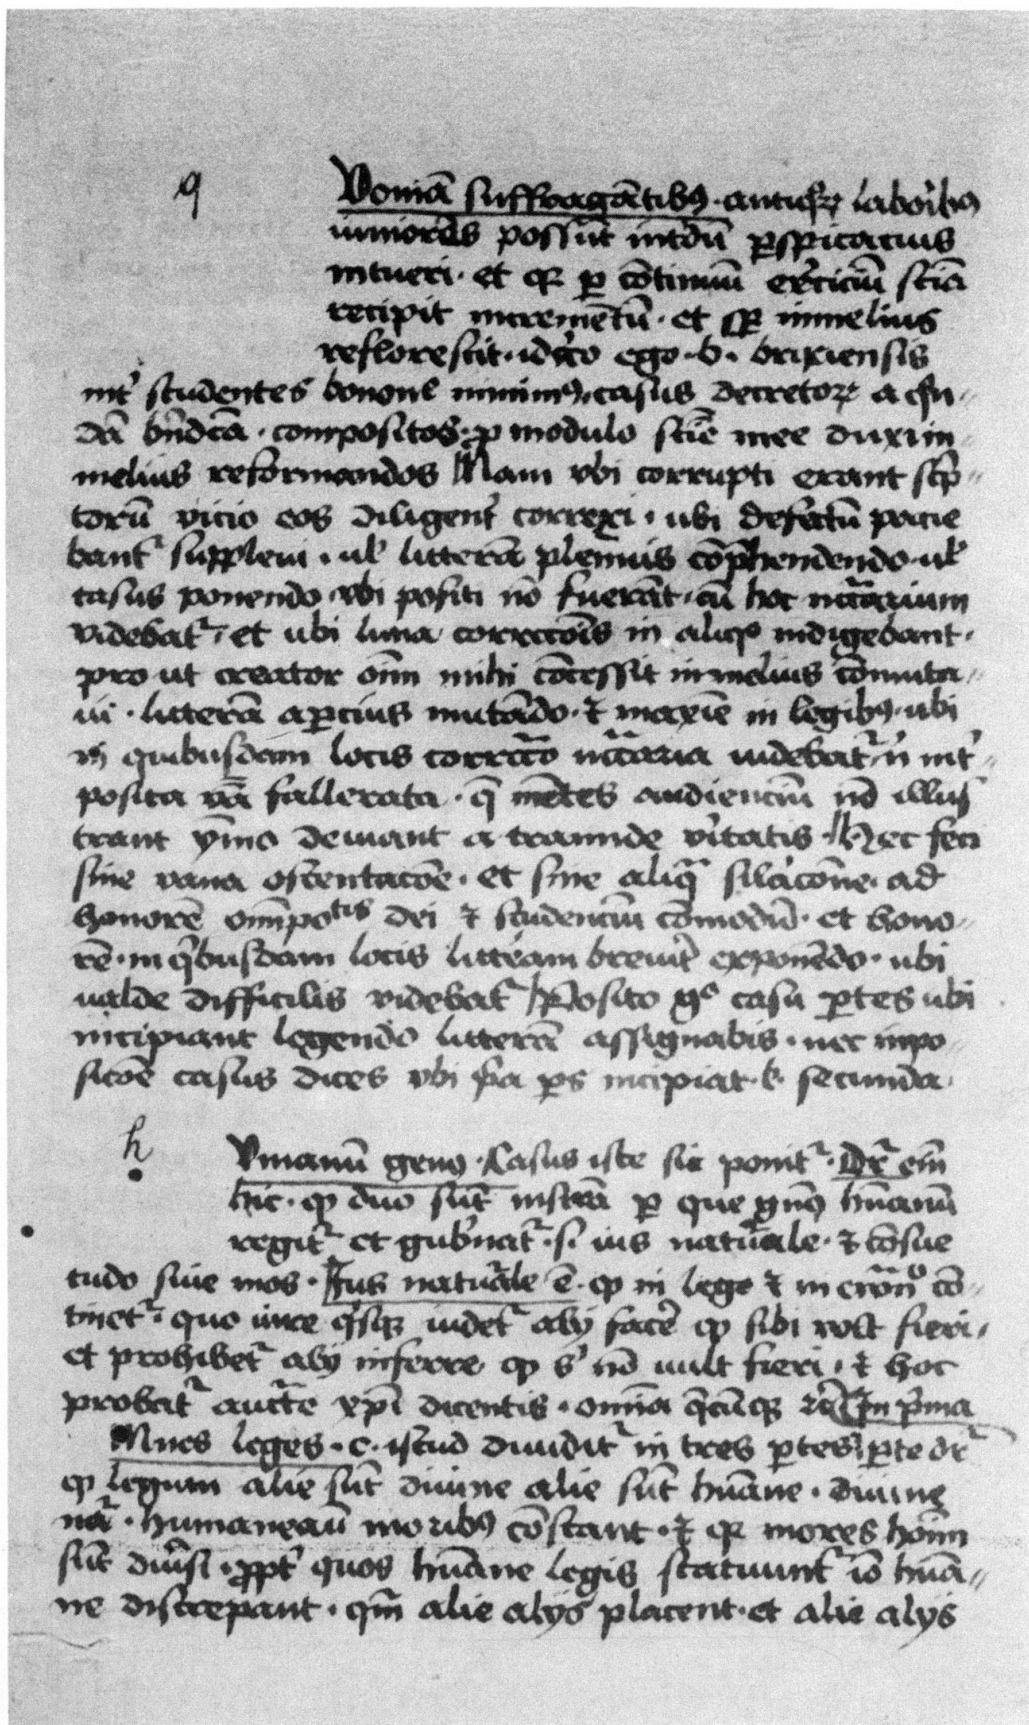 q
Voniā suffragātibꝰ · antiqꝝ laboribꝰ
iuniores possūt intdū ꝑspicacius
intueri · et qꝛ ꝑ cōtinuū exˀciciū sciā
recipit incremētū · et sꝑ inmelius
reflorescit · idcˀco ego · b · brixiensis
intˀ studentes bonoñ minimꝰ · casus decretoꝝ a qͦn-
dā bn̄dcō · compositos · ꝓ modulo sciē mee duxi in
melius reformandos Nam vbi corrupti erant scͥp-
torū vicio eos diligentˀ correxi · ubi defectū pacie
bantˀ suppleui · ul' litterā pleniꝰ cōp̄hendendo · ul'
casus ponendo vbi positi nō fuerāt · cū hoc nc̄c̄arium
videbatˀ · et ubi lima correctōis in aliqͦ indigebant ·
pro ut creator oīm mihi cōcessit in melius cōmuta-
ui · litterā aꝑcius mutādo · ⁊ maxiē in legibꝰ · ubi
in quibusdam locis correctō nc̄c̄aria uidebatˀ n̄ intˀ
posita vā fallerata · q̄ mētes audienciū nō illus
trant ymo deuiant a tramide vˀitatis · Hec feci
sine vana ostentacōe · et sine aliqͣ silacōne · ad
honorē om̄ipotͭⁱˢ dei ⁊ studenciū cōmodū · et hono-
rē · in qͥbusdam locis litteram breuitˀ exponēdo · ubi
ualde difficilis videbatˀ Posito gͦ casu ꝑtes ubi
incipiant legendo litterā assignabis · nec inpo-
sicōe casus dices vbi pͥa ꝑs incipiat · ł · secunda ·
h
Vmanū genꝰ · Casus iste sic ponitˀ · Drˀ eīm
hic · ꝙ duo sūt instrā ꝑ que gn̄ꝰ hūanū
regitˀ et gubˀnatˀ · s · ius natuͬale · ⁊ cōsue
tudo siue mos · Jus natuͬale ē · ꝙ in lege ⁊ in euāno cō-
tinetˀ · quo iure qͥsqꝫ iubetˀ alij facˀe ꝙ sibi volt fieri ·
et prohibetˀ alij inferre ꝙ sͥ nō uult fieri · ⁊ hoc
probatˀ auctē xp̄i dicentis · omīa qͣcūqꝫ ⁊c̄ In pͥma
Mnes leges · c · istud diuiditˀ in tres ꝑtes ꝑte drˀ
ꝙ legum alie sūt diuine alie sūt hūane · diuine
nāˀ · humane aū moribꝰ cōstant · ⁊ qꝛ mores hoīm
sūt diuˀsi · ꝓptˀ quos hūane legis statuuntˀ iō hūa-
ne discrepant · qm̄ alie alijs placent · et alie alijs